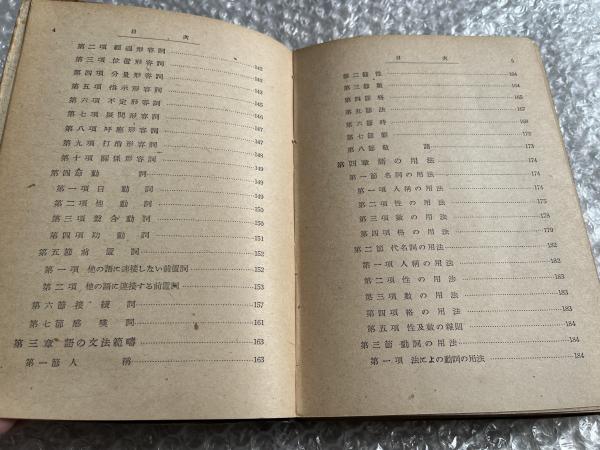 4 目次
第二項 ........ 142
第三項 位置形容詞 ........ 142
第四項 分量形容詞 ........ 144
第五項 指示形容詞 ........ 145
第六項 不定形容詞 ........ 146
第七項 疑問形容詞 ........ 147
第八項 呼應形容詞 ........ 148
第九項 打消形容詞 ........ 148
第十項 關係形容詞 ........ 149
第四節 動詞 ........ 149
第一項 自動詞 ........ 149
第二項 他動詞 ........ 150
第三項 複合動詞 ........ 150
第四項 助動詞 ........ 151
第五節 前置詞 ........ 152
第一項 他の語に連接しない前置詞 ........ 152
第二項 他の語に連接する前置詞 ........ 153
第六節 接續詞 ........ 157
第七節 感嘆詞 ........ 161
第三章 語の文法範疇 ........ 163
第一節 人稱 ........ 163
目次 5
第二節 性 ........ 164
第三節 數 ........ 164
第四節 格 ........ 165
第五節 法 ........ 167
第六節 時 ........ 170
第七節 ........ 172
第八節 敬語 ........ 173
第四章 語の用法 ........ 174
第一節 名詞の用法 ........ 174
第一項 人稱の用法 ........ 174
第二項 性の用法 ........ 175
第三項 數の用法 ........ 176
第四項 格の用法 ........ 179
第二節 代名詞の用法 ........ 182
第一項 人稱の用法 ........ 183
第二項 性の用法 ........ 183
第三項 數の用法 ........ 183
第四項 格の用法 ........ 183
第五項 性及數の ........ 184
第三節 動詞の用法 ........ 184
第一項 法によの動詞の用法 ........ 184